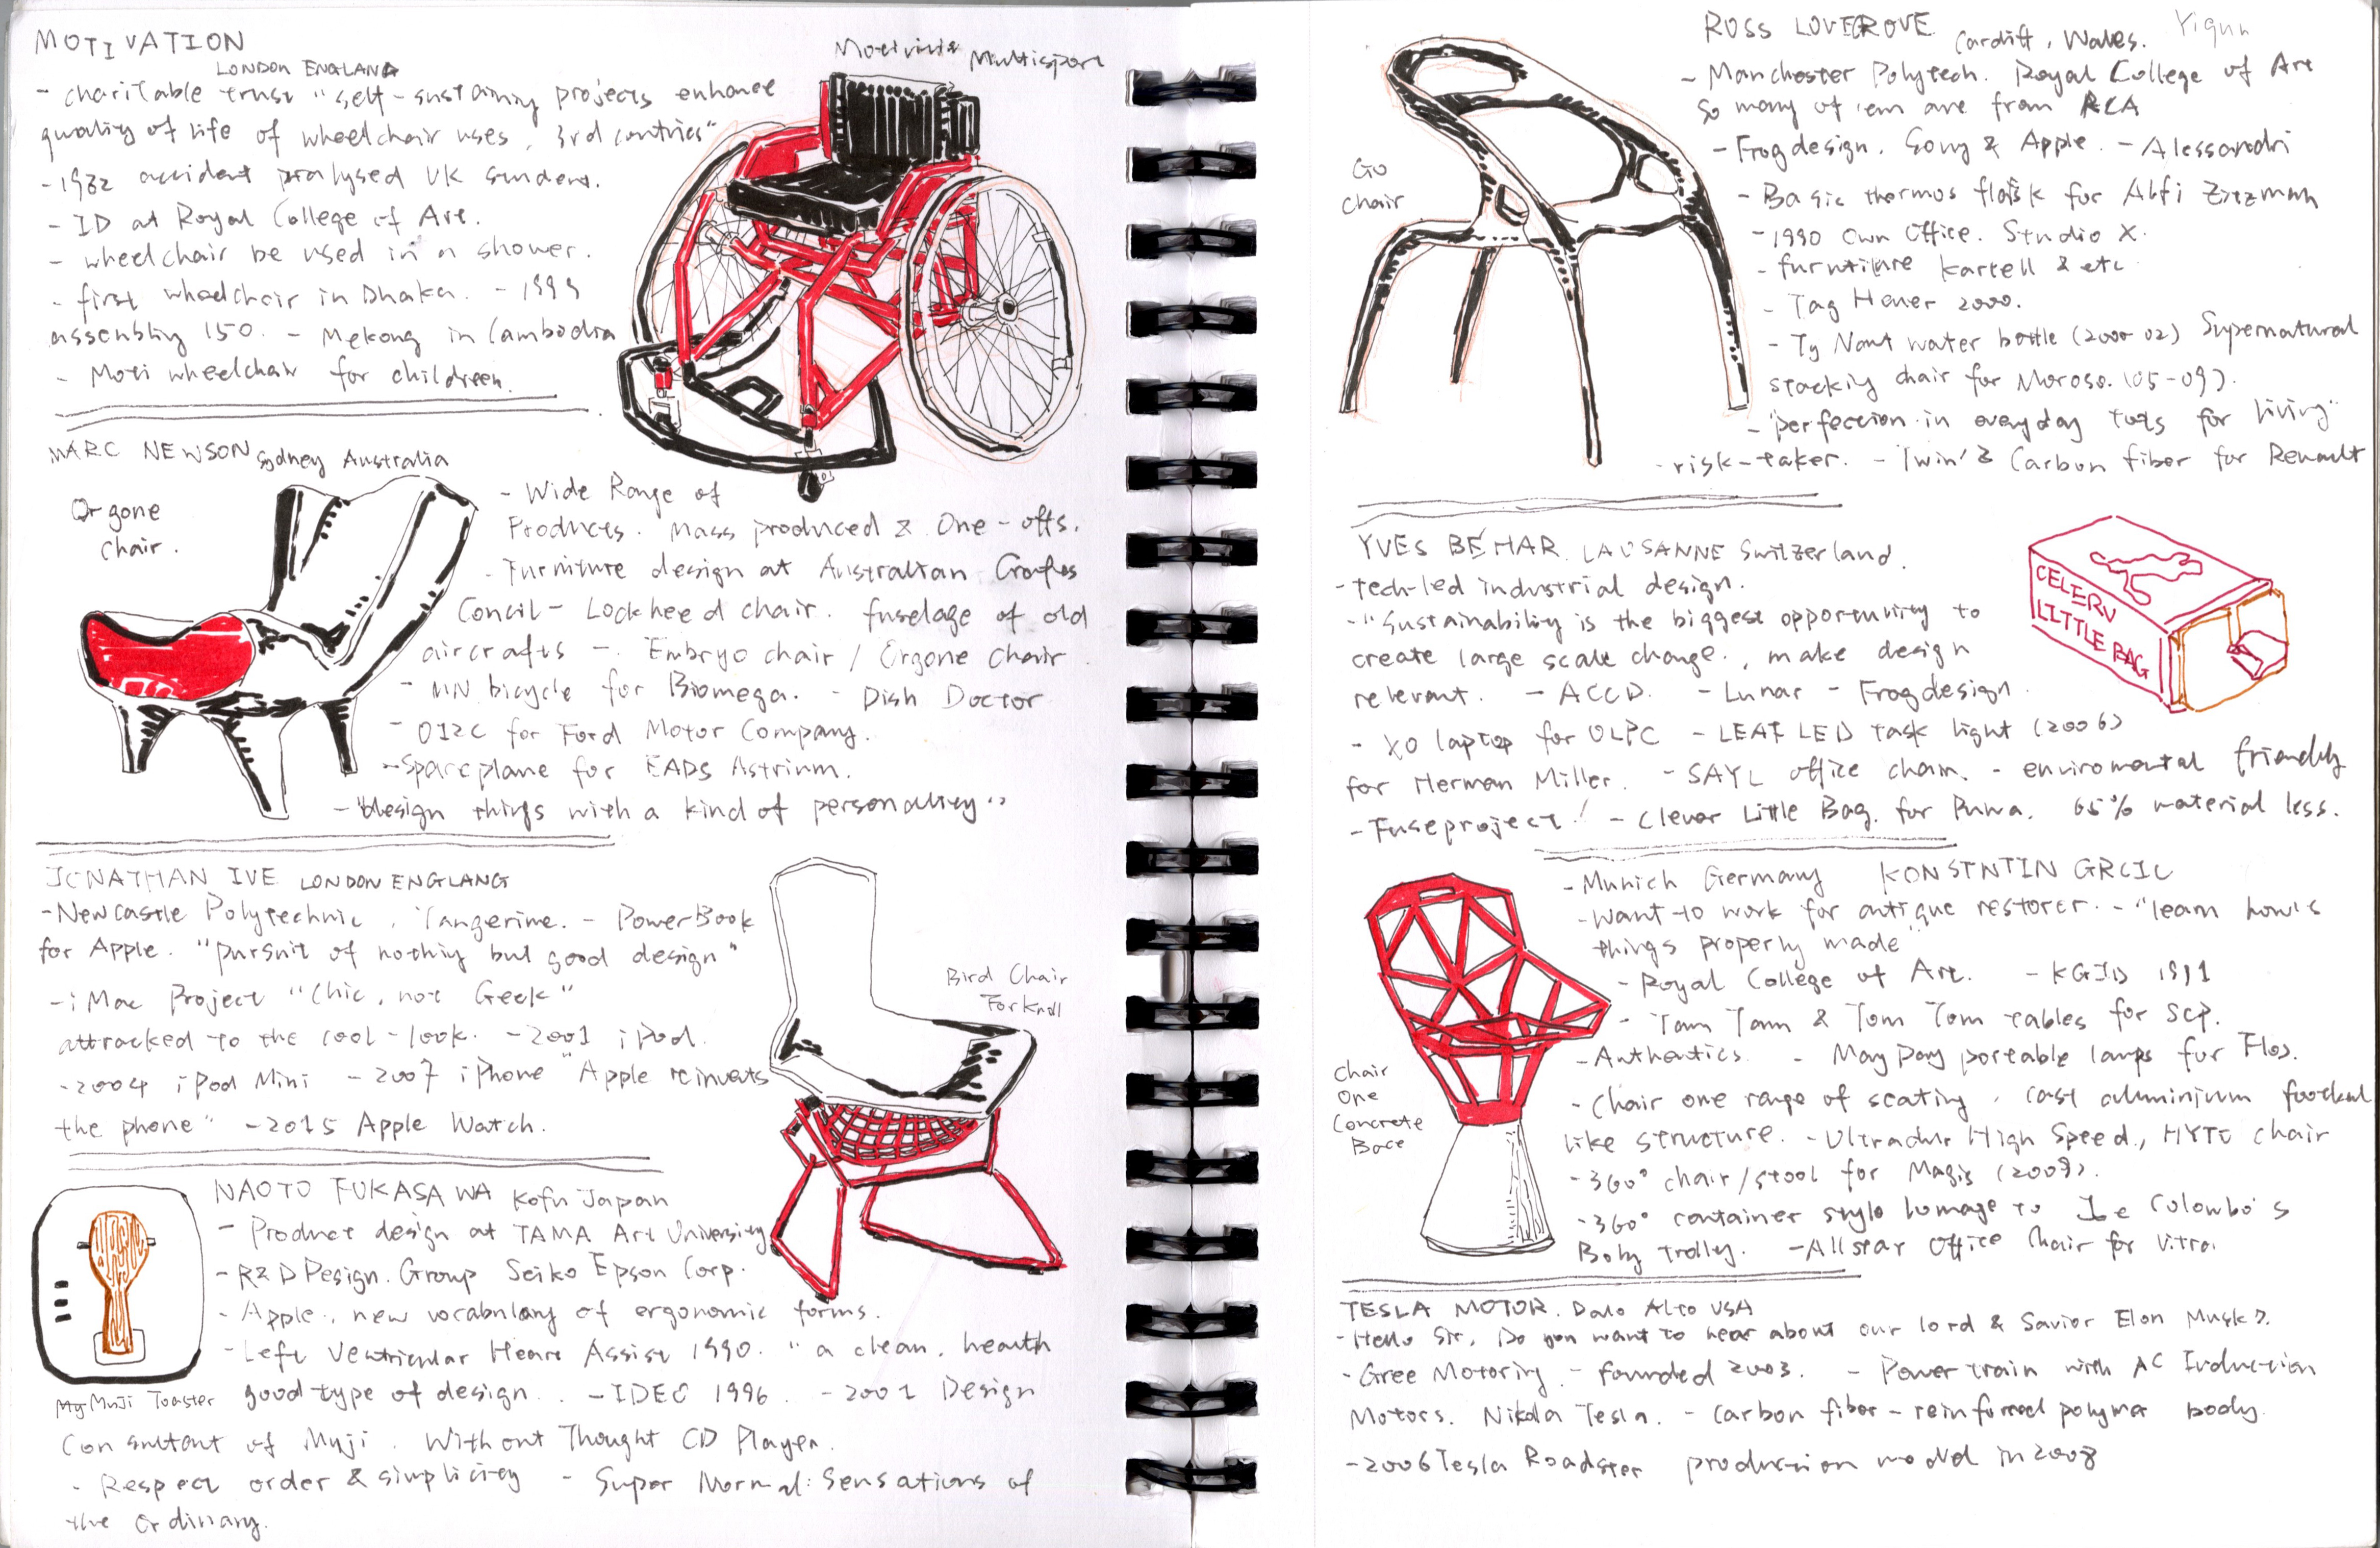 MOTIVATION
LONDON ENGLAND
- charitable trust "self-sustaining projects enhance
quality of life of wheelchair uses, 3rd contries"
- 1982 accident pralysed UK student.
- ID at Royal College of Art.
- wheelchair be used in a shower.
- first wheelchair in Dhaka. - 1999
assembling 150. - Mekong in Cambodia
- Moti wheelchair for childreen.
Multisport
MARC NEWSON Sydney Australia
Orgone
Chair.
- Wide Range of
Products. Mass produced & One-offs.
- Furniture design at Australian Crafts
Concil - Lockheed chair. fuselage of old
aircrafts - Embryo chair / Orgone Chair
- MN bicycle for Biomega. - Dish Doctor
- 012C for Ford Motor Company.
- Spaceplane for EADS Astrium.
- "design things with a kind of personality"
JONATHAN IVE LONDON ENGLANG
- Newcastle Polytechnic, Tangerine. - PowerBook
for Apple. "pursuit of nothing but good design"
- iMac Project "Chic, not Geek"
attracked to the cool-look. - 2001 iPod.
- 2004 iPod Mini - 2007 iPhone "Apple reinvents
the phone" - 2015 Apple Watch.
Bird Chair
For Knoll
NAOTO FUKASAWA Kofu Japan
- Product design at TAMA Art University
- R&D Design. Group Seiko Epson Corp.
- Apple., new vocabulary of ergonomic forms.
- Left Ventricular Heart Assist 1990. "a clean, health
good type of design. - IDEO 1996 - 2001 Design
My Muji Toaster
Consultant of Muji. Without Thought CD Player.
- Respect order & simplicity - Super Normal: Sensations of
the Ordinary.
ROSS LOVEGROVE Cardiff, Wales. Yiqun
- Manchester Polytech. Royal College of Art
so many of 'em are from RCA
- Frogdesign. Sony & Apple. - Alessandri
- Basic thermos flask for Alfi Zitzman
- 1990 Own Office. Studio X.
- furniture Kartell & etc
- Tag Heuer 2000.
- Ty Nant water bottle (2000-02) Supernatural
stacking chair for Moroso. (05-09).
- "perfection in everyday tools for living"
- risk-taker. - Twin'Z Carbon fiber for Renault
Go
chair
YVES BÉHAR LAUSANNE Switzerland.
- tech-led industrial design.
- "Sustainability is the biggest opportunity to
create large scale change., make design
relevant. - ACCD. - Lunar - Frogdesign.
- XO laptop for OLPC - LEAF LED task light (2006)
for Herman Miller. - SAYL office chair. - enviromental friendly
- Fuseproject! - Clever Little Bag. for Puma. 65% material less.
LITTLE BAG
- Munich Germany KONSTNTIN GRCIC
- Want to work for antique restorer. - "learn how's
things properly made"
- Royal College of Art. - KGID 1991
- Tam Tam & Tom Tom tables for SCP.
- Authentics. - May Day portable lamps for Flos.
- Chair one range of seating, cast aluminium football
like structure. - Ultradur High Speed., MYTO chair
- 360° chair/stool for Magis (2009).
- 360° container style homage to Joe Colombo's
Boby trolley. - Allstar Office Chair for Vitra.
Chair
One
Concrete
Base
TESLA MOTOR. Palo Alto USA
- Hello Sir, Do you want to hear about our lord & Savior Elon Musk?.
- Gree Motoring - founded 2003. - Power train with AC Induction
Motors. Nikola Tesla. - Carbon fiber-reinforced polymer body.
- 2006 Tesla Roadster production model in 2008